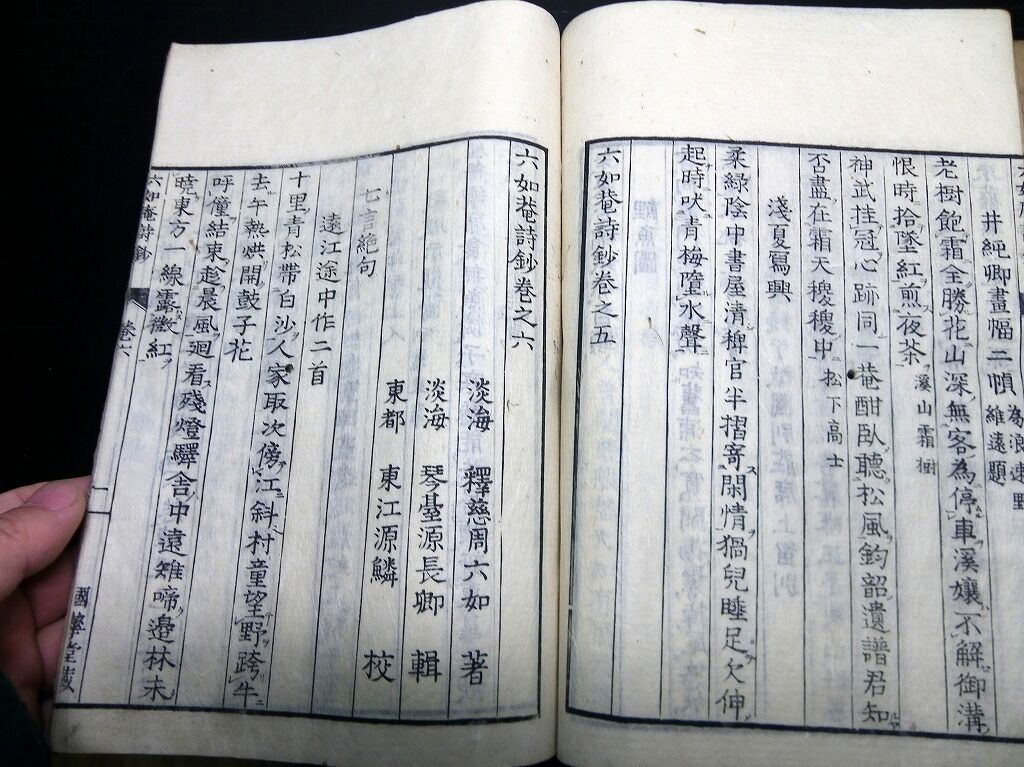 井純卿畫幅二幀 為浪速野維遠題
老樹飽霜全勝花山深無客為停車溪孃不解御溝
恨時拾墜紅煎夜茶 溪山霜樹
神武挂冠心跡同一菴酣臥聽松風鈞韶遺譜君知
否盡在霜天稷稷中 松下高士
淺夏寫興
柔綠陰中書屋清稗官半摺寄閑情猧兒睡足欠伸
起時吠青梅墮水聲
六如菴詩鈔卷之五
六如菴詩鈔卷之六
淡海 釋慈周六如 著
淡海 琴臺源長卿 輯
東都 東江源鱗 校
七言絕句
遠江途中作二首
十里青松帶白沙人家取次傍江斜村童望野跨牛
去午熱烘開鼓子花
呼僮結束趁晨風廻看殘燈驛舍中遠雉啼邊林未
曉東方一線露微紅
六如菴詩鈔 卷六 一